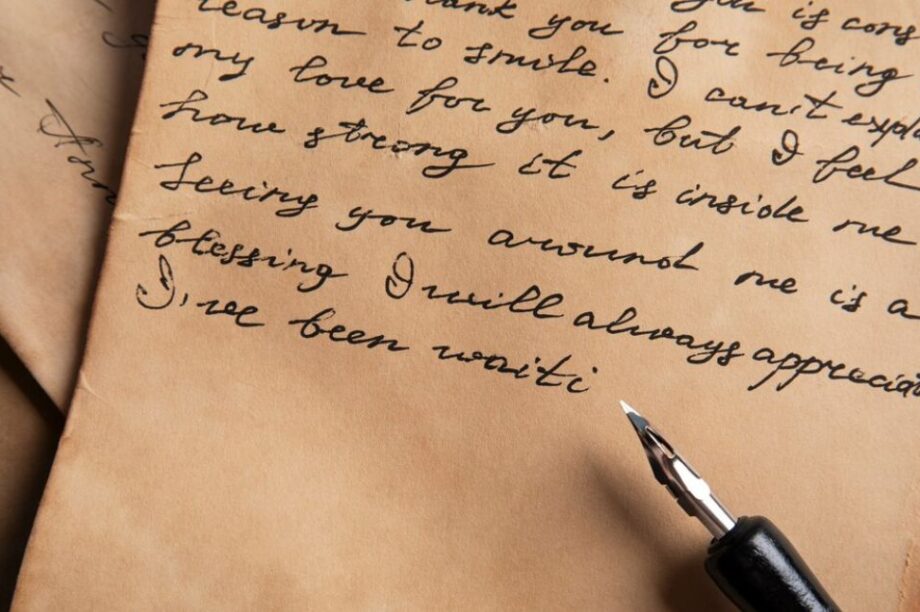 thank you for being
reason to smile. I can't
my love for you, but I feel
how strong it is inside me
Seeing you around me is a
blessing I will always
I've been waiti
you is